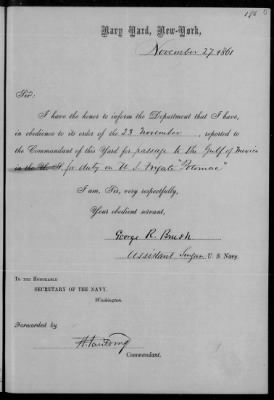 Navy Yard, New-York,
November 27, 1861
Sir:
I have the honor to inform the Department that I have,
in obedience to its order of the 23 November, reported to
the Commandant of this Yard for passage to the Gulf of Mexico
for duty on U. S. Frigate "Potomac"
I am, Sir, very respectfully,
Your obedient servant,
George R. Brush
Assistant Surgeon U. S. Navy.
To the Honorable
SECRETARY OF THE NAVY,
Washington.
Forwarded by
Commandant.